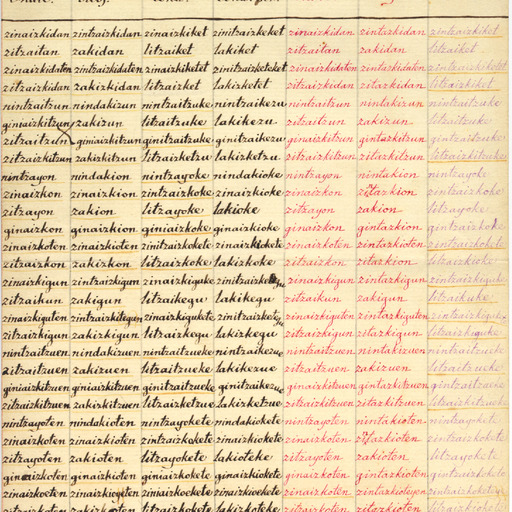 zinaizkidan zintzaizkidan zinaizkiket zinitzaizkeket zinaizkidan zintazkidan zintzaizkiket
zitzaitan zakidan litzaiket lakiket zitzaitan zakidan litzaiket
zinaizkidaten zintzaizkidaten zinaizkiketet zinitzaizketeket zinaizkidaten zintazkidaten zintzaizkiketet
zitzaizkidan zakizkidan litzaizket lakizketet zitzaizkidan zitazkidan litzaizkiket
nintzaitzun nindakizun nintzaitzuke nintzaikezu nintzaitzun nintakizun nintzaitzuke
giniaizkitzun zakizun litzaitzuke lakikezu zitzaitzun zitzaitzun litzaitzuke
zitzaitzun giniaizkitzun ginitzaitzuke ginitzaikezu ginaizkitzun gintazkitzun gintzaitzuke
zitzaizkitzun zakizkitzun litzaizketzu lakizketzu zitzaizkitzun zitazkitzun litzaizkitzuke
nintzayon nindakion nintzayoke nindakioke nintzayon nintakion nintzayoke
zinaizkon zinaizkion zintzaizkoke zinaizkioke zinaizkon zitazkion zintzaizkoke
zitzayon zakion litzayoke lakioke zitzayon zakion litzayoke
ginaizkon ginaizkion giniaizkoke ginaizkioke ginaizkon gintazkion gintzaizkoke
zinaizkoten zinaizkioten zinitzaizkokete zinaizkiokete zinaizkoten zintazkioten zintzaizkokete
zitzaizkon zakizkon litzaizkoke lakizkoke zitzaizkon zitazkion litzaizkioke
zinaizkigun zintzaizkigun zinaizkiguke zinitzaizkegu zinaizkigun zintazkigun zintzaizkiguke
zitzaikun zakigun litzaikegu lakikegu zitzaikun zakigun litzaikuke
zinaizkiguten zintzaizkitegun zinaizkigukete zinitzaizketegu zinaizkiguten zintazkiguten
zitzaizkigun zakizkigun litzaizkegu lakizkegu zitzaizkigun zitazkigun litzaizkiguke
nintzaitzuen nindakizuen nintzaitzueke nintzaikezue nintzaitzuen nintakizuen nintzaitzueke
zitzaitzuen zakizuen litzaitzueke lakikezue zitzaitzuen zakizuen litzaitzueke
giniaizkitzuen giniaizkitzuen ginitzaitzueke ginitzaikezue ginaizkitzuen gintazkitzuen gintzaitzueke
zitzaizkitzuen zakizkitzuen litzaizketzue lakizketzue zitzaizkitzuen zitazkitzuen litzaizkitzueke
nintzayoten nindakioten nintzayokete nindakiokete nintzayoten nintakioten nintzayokete
zinaizkoten zinaizkioten zintzaizkokete zinaizkiokete zinaizkoten zitazkioten zintzaizkokete
zitzayoten zakioten litzayokete lakioteke zitzayoten zakioten litzayokete
ginaizkoten ginaizkioten giniaizkokete ginaizkiokete ginaizkoten gintazkioten gintzaizkokete
zinaizkoeten zinaizkigeten ziniaizkoekete zinaizkioekete zinaizkoten zintazkioteyen
zitzaizkoten zakizkioten litzaizkokete lakizkoteke zitzaizkoten zitazkioten litzaizkokete